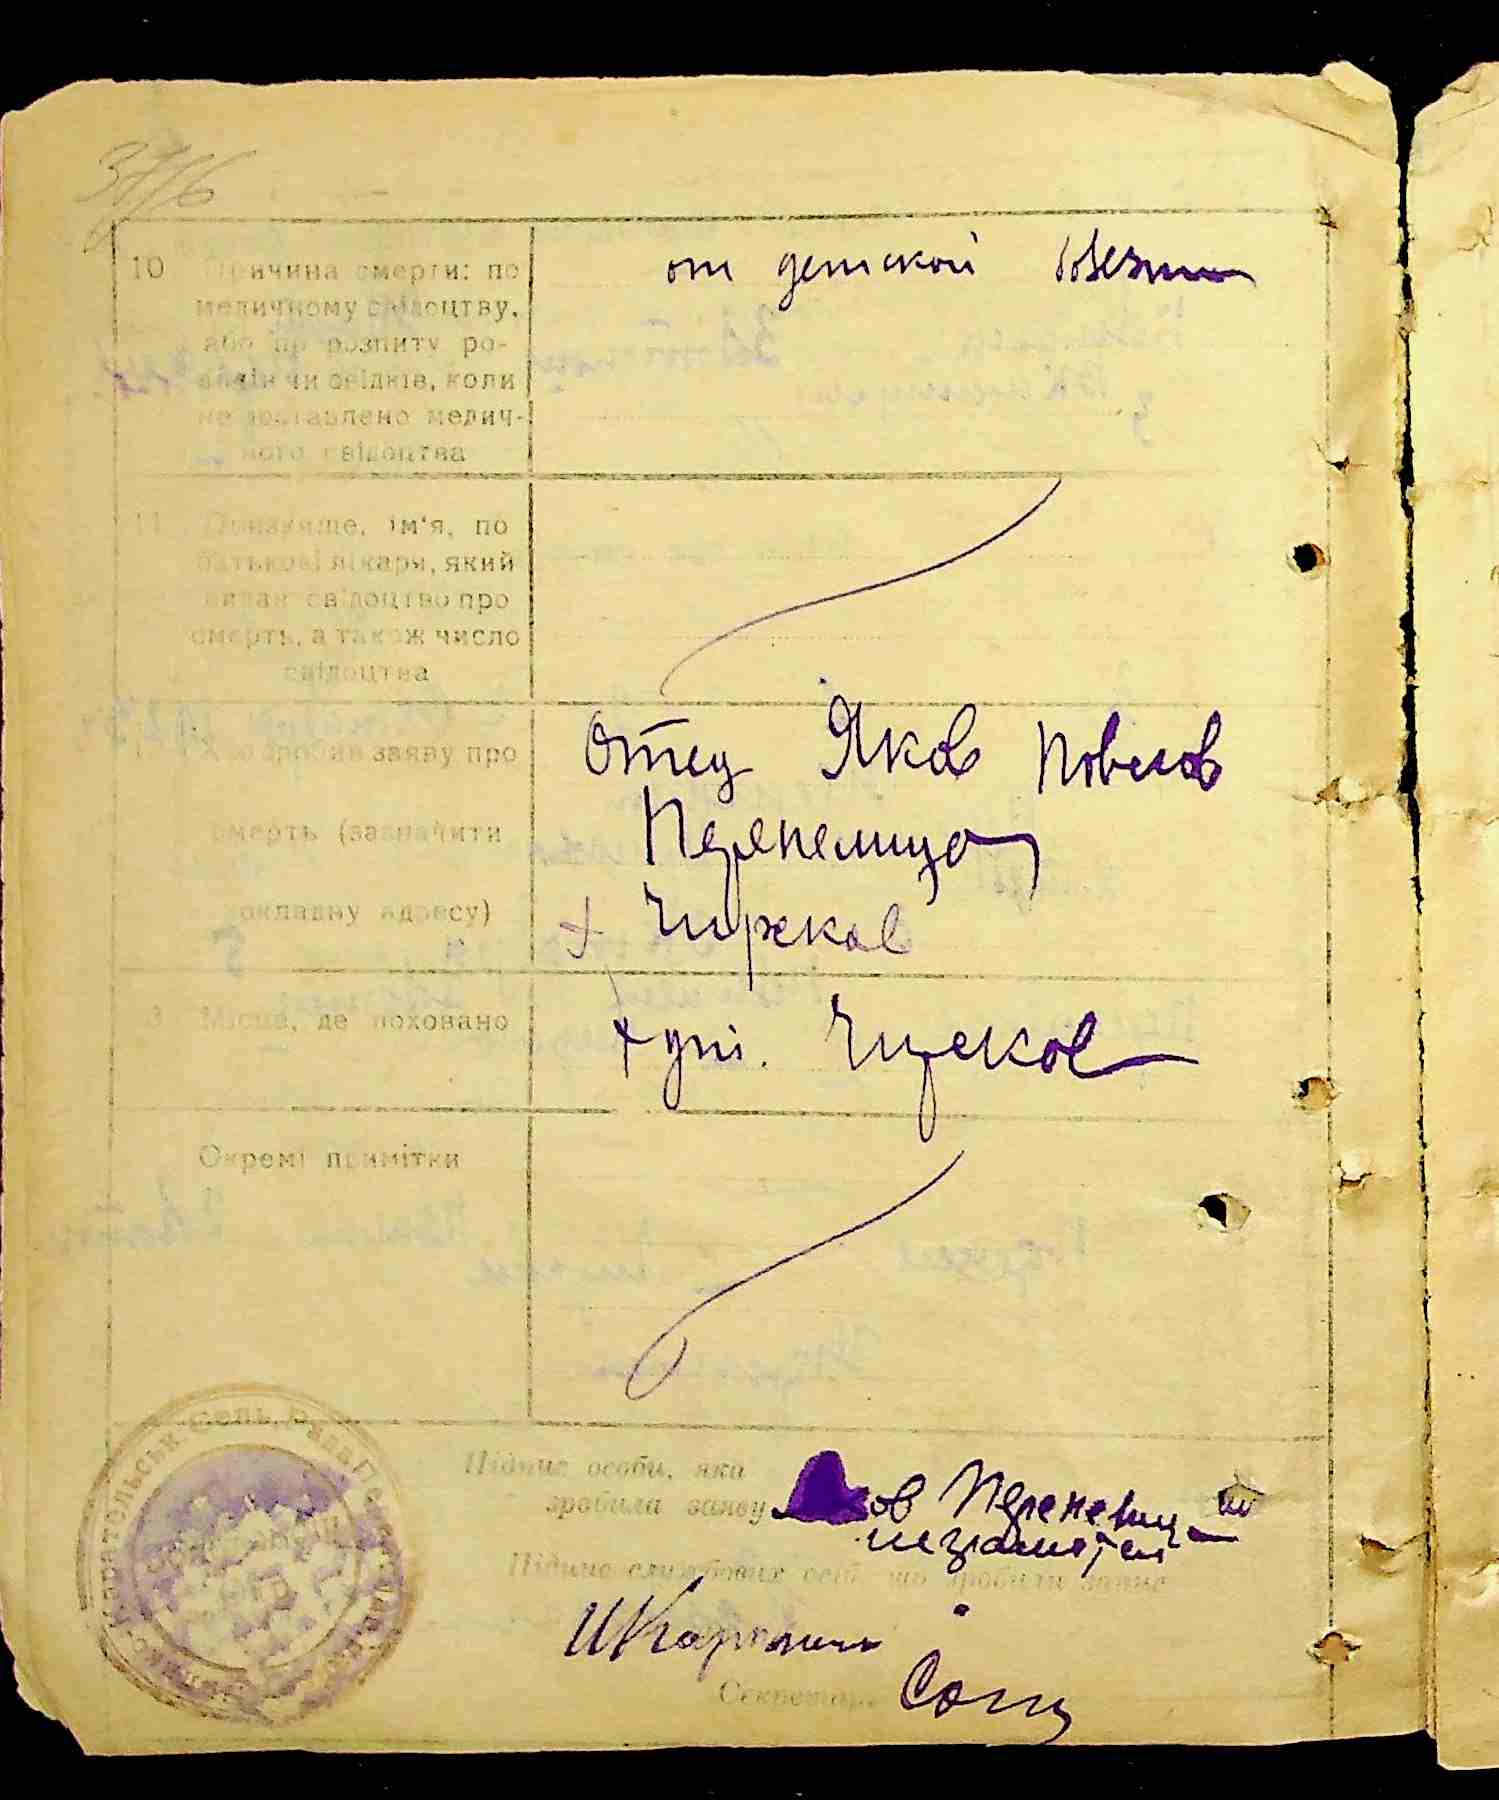 10 Причина смерти: по
медичному свідоцтву,
або по розпиту ро-
дин чи свідків, коли
не доставлено медич-
ного свідоцтва
от детской болезни
11 Прізвище, ім'я, по
батькові лікаря, який
видав свідоцтво про
смерть, а також число
свідоцтва
зробив заяву про
смерть (зазначити
докладну адресу)
Отец Яков Повелов
Перепелица
х Чирков
3 Місце, де поховано
хут. Чирков
Окремі примітки
Сель. Рада
Підпис особи, яка
зробила заяву
ов Перепелица
неграмотен
Підпис службових осіб, що зробили запис
Секретарь